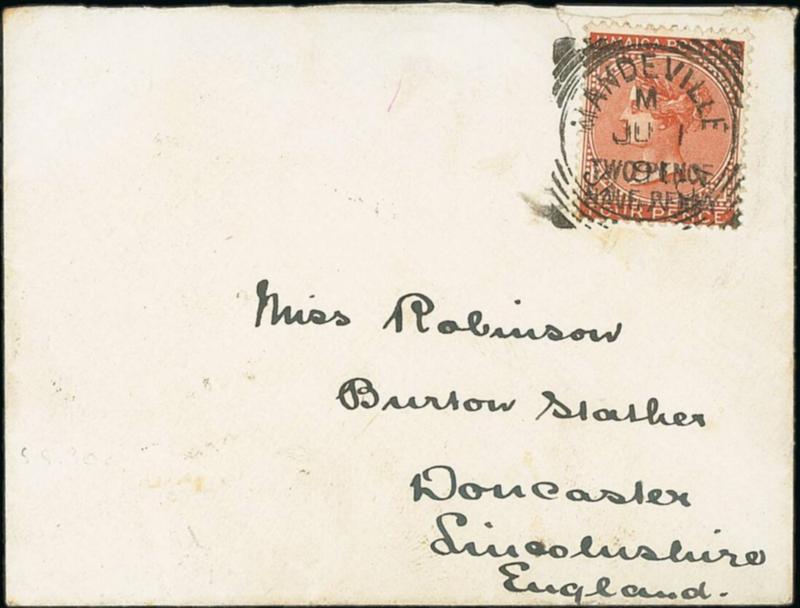 JAMAICA POSTAGE
MANDEVILLE
M
JU 1
TWO PENCE
HALF-PENNY
FOUR PENCE
Miss Robinson
Burton Stather
Doncaster
Lincolnshire
England.